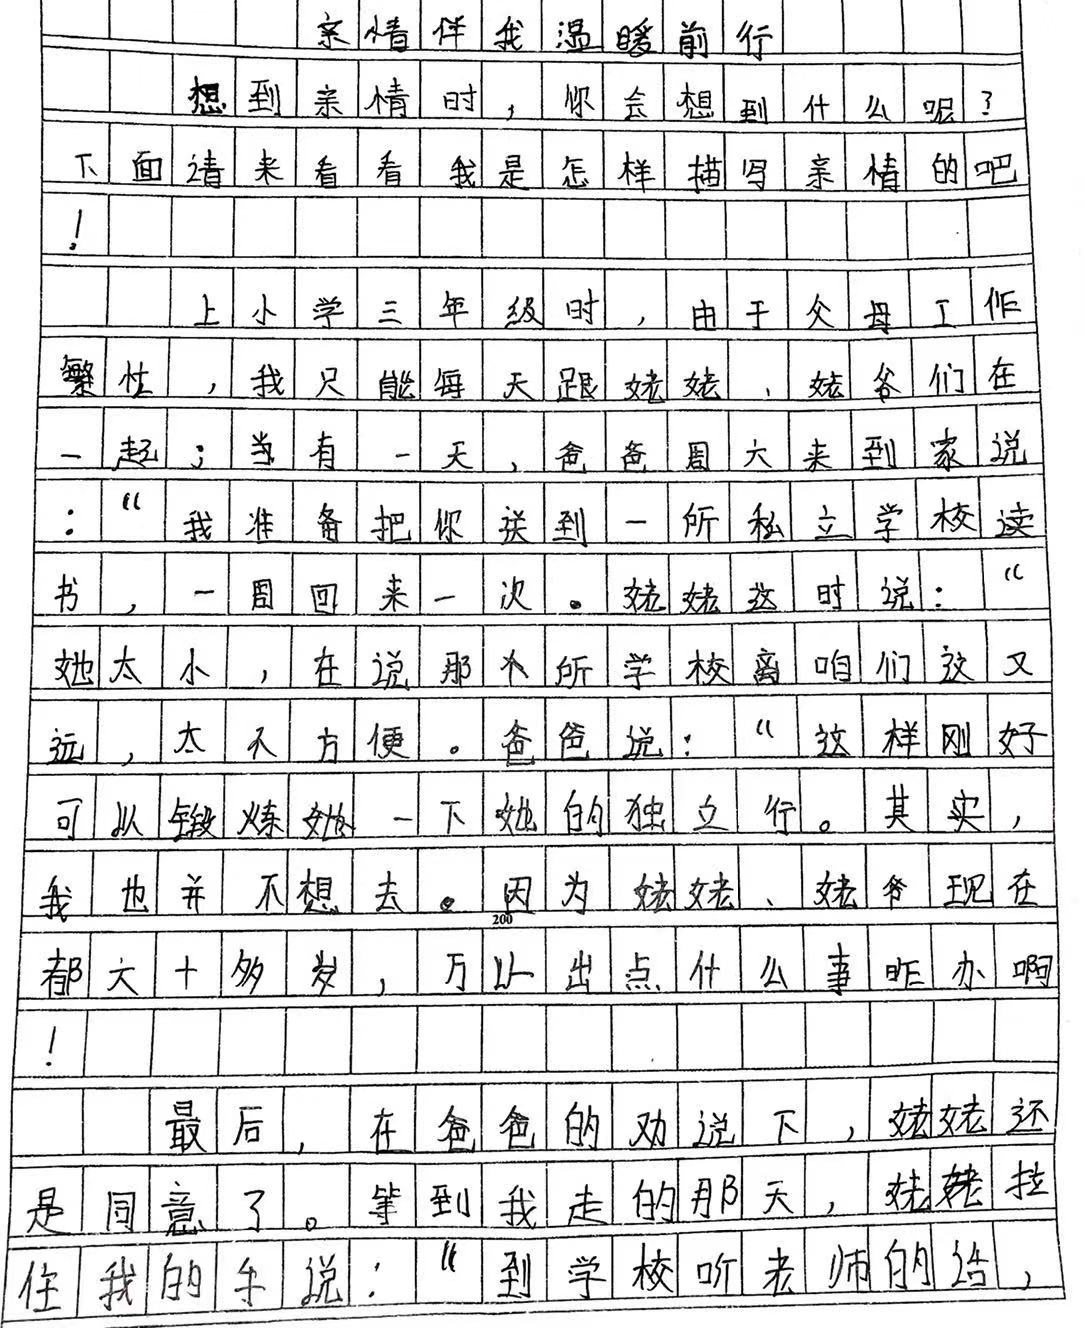 亲情伴我温暖前行
想到亲情时，你会想到什么呢？
下面请来看看我是怎样描写亲情的吧
！
上小学三年级时，由于父母工作
繁忙，我只能每天跟姥姥、姥爷们在
一起；当有一天，爸爸周六来到家说
：“我准备把你送到一所私立学校读
书，一周回来一次。姥姥这时说：“
她太小，在说那个所学校离咱们这又
远，太不方便。爸爸说：“这样刚好
可以锻炼她一下她的独立行。其实，
我也并不想去。因为姥姥、姥爷现在
200
都六十多岁，万以出点什么事咋办啊
！
最后，在爸爸的劝说下，姥姥还
是同意了。等到我走的那天，姥姥拉
住我的手说：“到学校听老师的话，